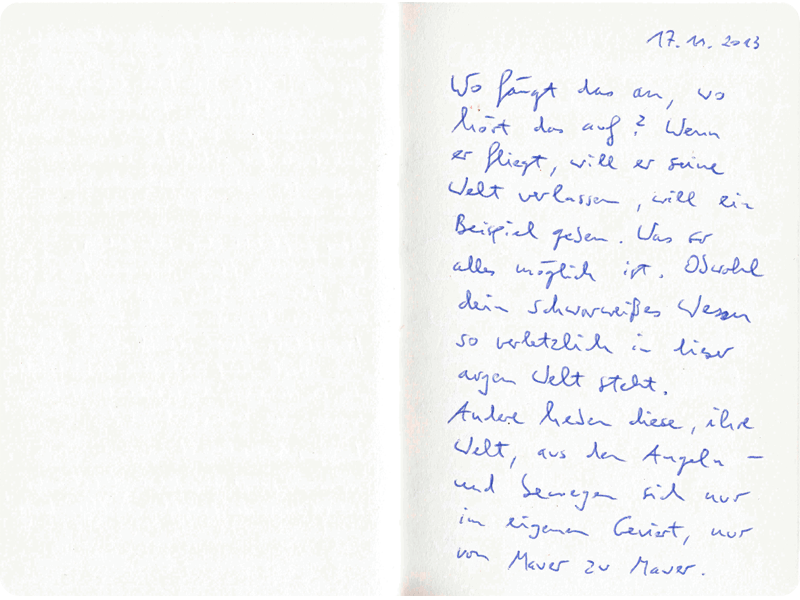 17.11.2013
Wo fängt das an, wo
hört das auf? Wenn
er fliegt, will er seine
Welt verlassen, will ein
Beispiel geben. Was so
alles möglich ist. Obwohl
dein schwarweißes Wesen
so verletzlich in dieser
argen Welt steht.
Andere heben diese, ihre
Welt, aus den Angeln –
und bewegen sich nur
im eigenen Geviert, nur
von Mauer zu Mauer.